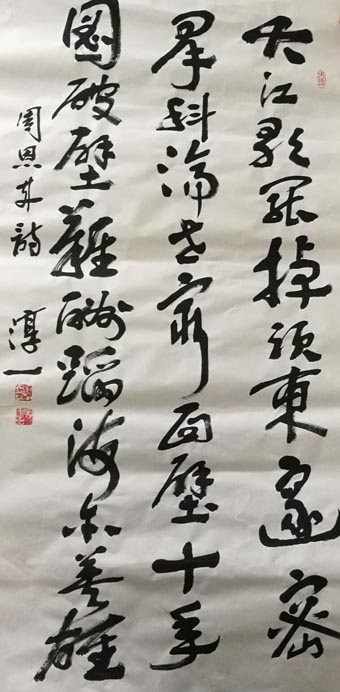 大江歌罷掉頭東邃密
羣科濟世窮面壁十年
圖破壁難酬蹈海亦英雄
周恩來詩 淳一